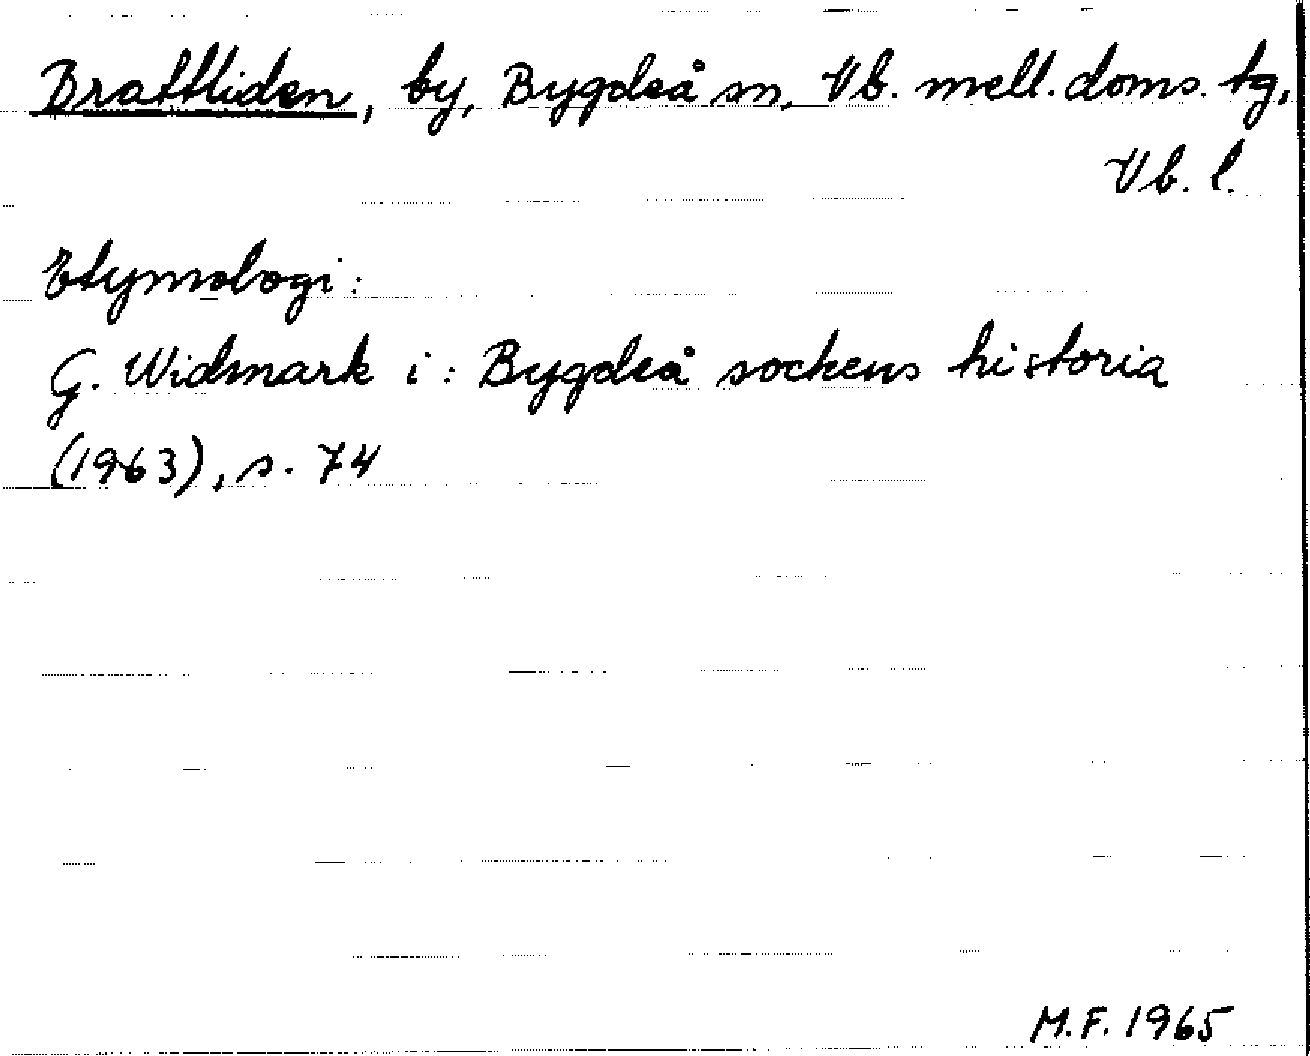 Brattliden, by, Bygdeå sn, Vb. mell. doms. tg,
Vb. l.
Etymologi:
G. Widmark i: Bygdeå sockens historia
(1963), s. 74
M.F. 1965